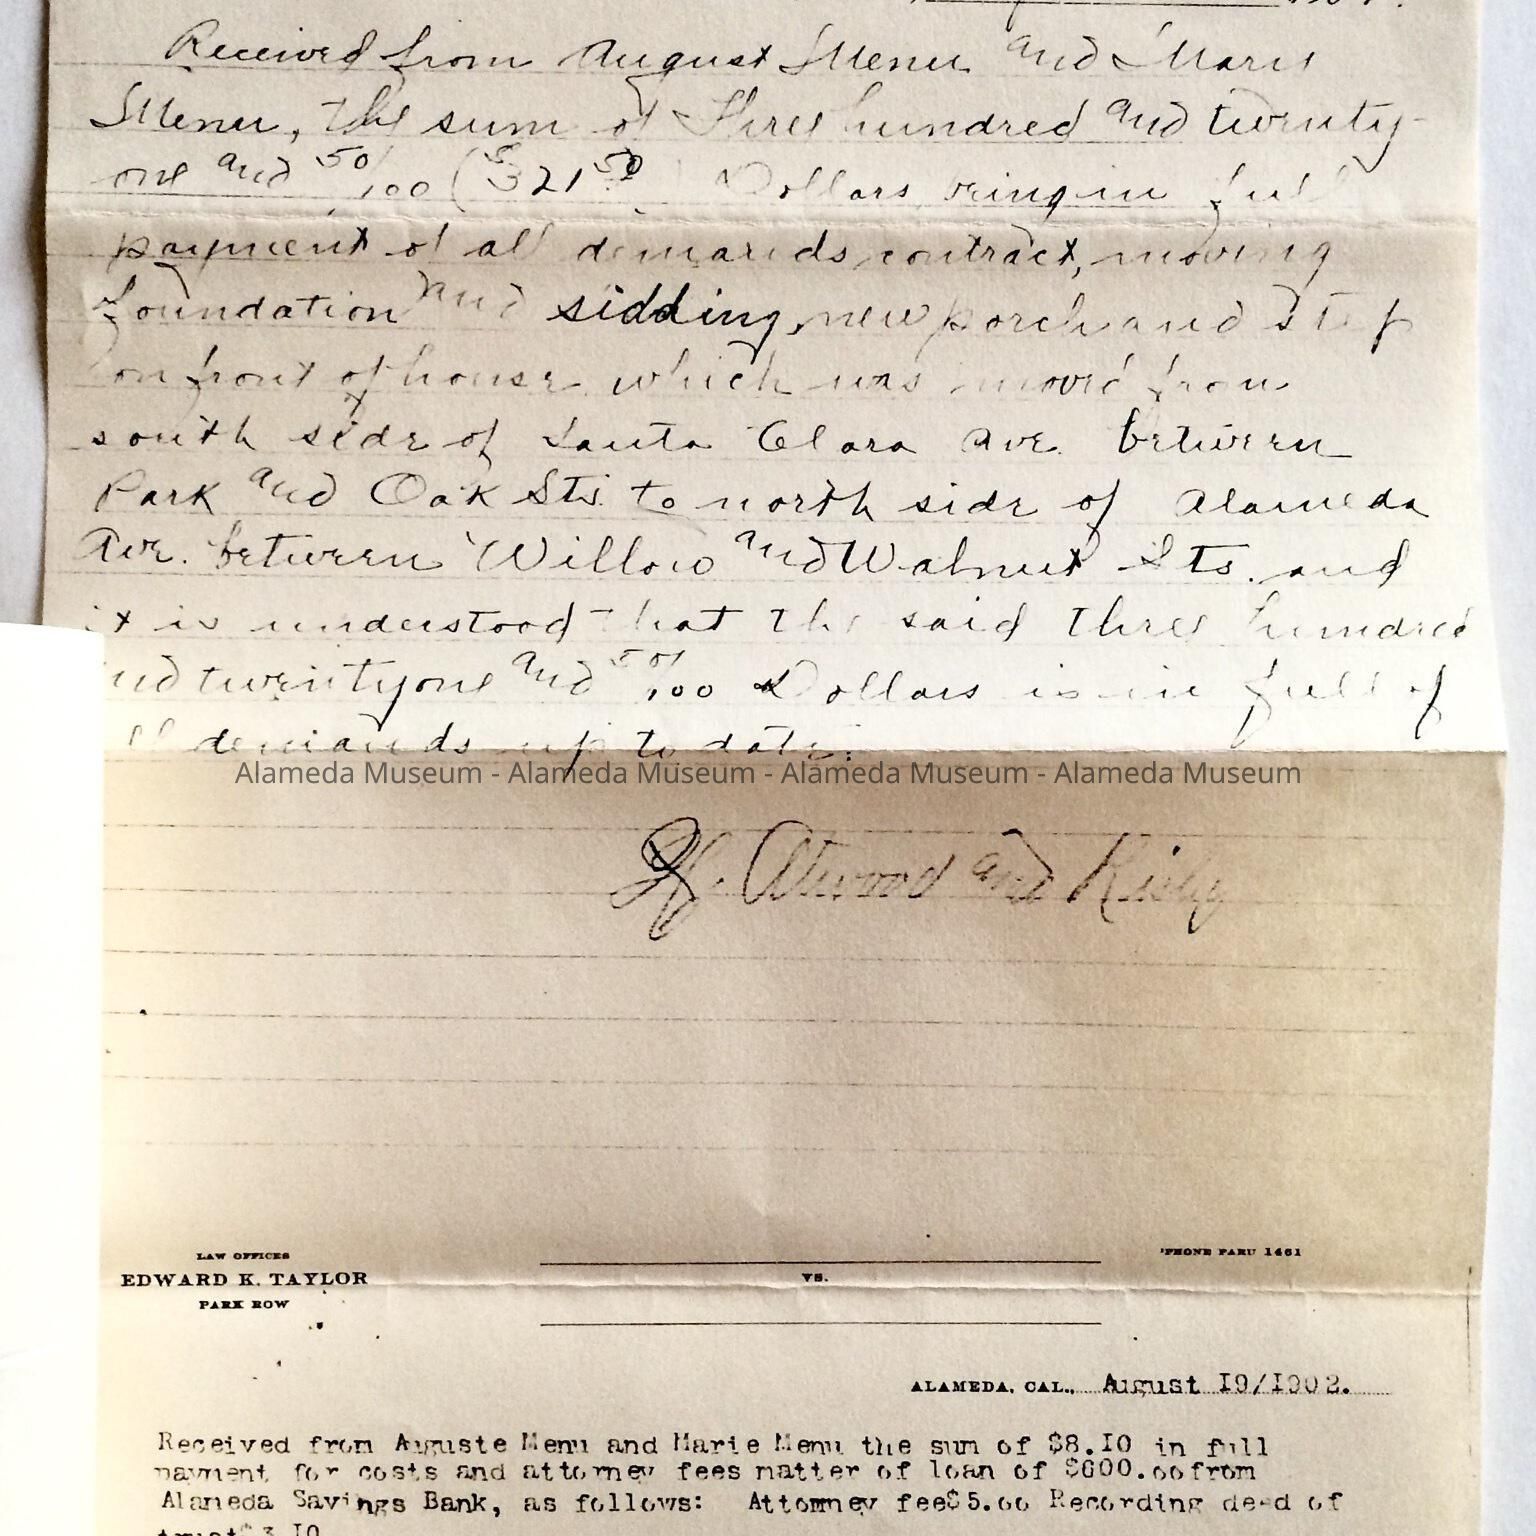 Received from August Menu and Marie
Menu, the sum of Three hundred and twenty
one and 50/100 ($321 50 Dollars, being in full
payment of all demands contract, moving
foundation and sidding, new porch and step
on front of house which was moved from
south side of Santa Clara Ave. between
Park and Oak Sts. to north side of Alameda
Ave. between Willow and Walnut Sts. and
it is understood that the said three hundred
and twentyone and 50/100 Dollars is in full of
all demands up to date.
Alameda Museum - Alameda Museum - Alameda Museum - Alameda Museum
Atwood and
LAW OFFICES
EDWARD K. TAYLOR
PARK ROW
'PHONE PARU 1461
VS.
ALAMEDA, CAL., August 19/1902.
Received from Auguste Menu and Marie Menu the sum of $8.10 in full
payment for costs and attorney fees matter of loan of $600.00 from
Alameda Savings Bank, as follows: Attorney fee$5.00 Recording deed of
trust$3.10